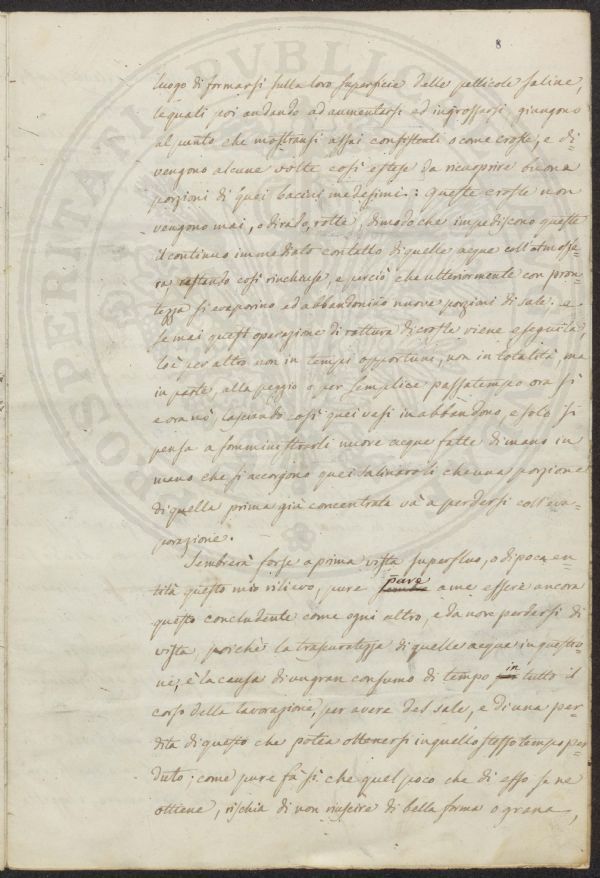 8
luogo di formarsi sulla loro superficie delle pellicole saline,
le quali poi andando ad aumentarsi ed ingrossarsi giungono
al punto che mostransi assai consistenti o come croste; e di-
vengono alcune volte così estese da ricuoprire buona
porzioni di quei bacini medesimi: Queste croste non
vengono mai, o di rado, rotte, dimodoche impediscono queste
il continuo immediato contatto di quelle acque coll'atmosfe-
ra, restando così rinchiuse, e perciò che ulteriormente con pron-
tezza si evaporino ed abbandonino nuove porzioni di sale. e
se mai quest'operazione di rottura di croste viene eseguita,
lo è per altro non in tempi opportuni, non in totalità, ma
in parte, alla peggio o per semplice passatempo ora sì
e ora nò, lasciando così quei vasi in abbandono, e solo si
pensa a somministrarli nuove acque fatte di mano in
mano che si accorgono quei salinaroli che una porzione
di quella prima già concentrata và a perdersi coll'eva-
porazione.
Sembrerà forse a prima vista superfluo, o di poca en-
tità questo mio rilievo, pure pare a me essere ancora
questo concludente come ogni altro, e da non perdersi di
vista, poichè la trascuratezza di quelle acque in questio-
ne; è la causa di un gran consumo di tempo in tutto il
corso della lavorazione, per avere del sale, e di una per-
dita di questo che potea ottenersi in quello stesso tempo per-
duto; come pure fà sì che quel poco che di esso se ne
ottiene, rischia di non riuscire di bella forma o grana,
PROSPERITATI PVBLIC